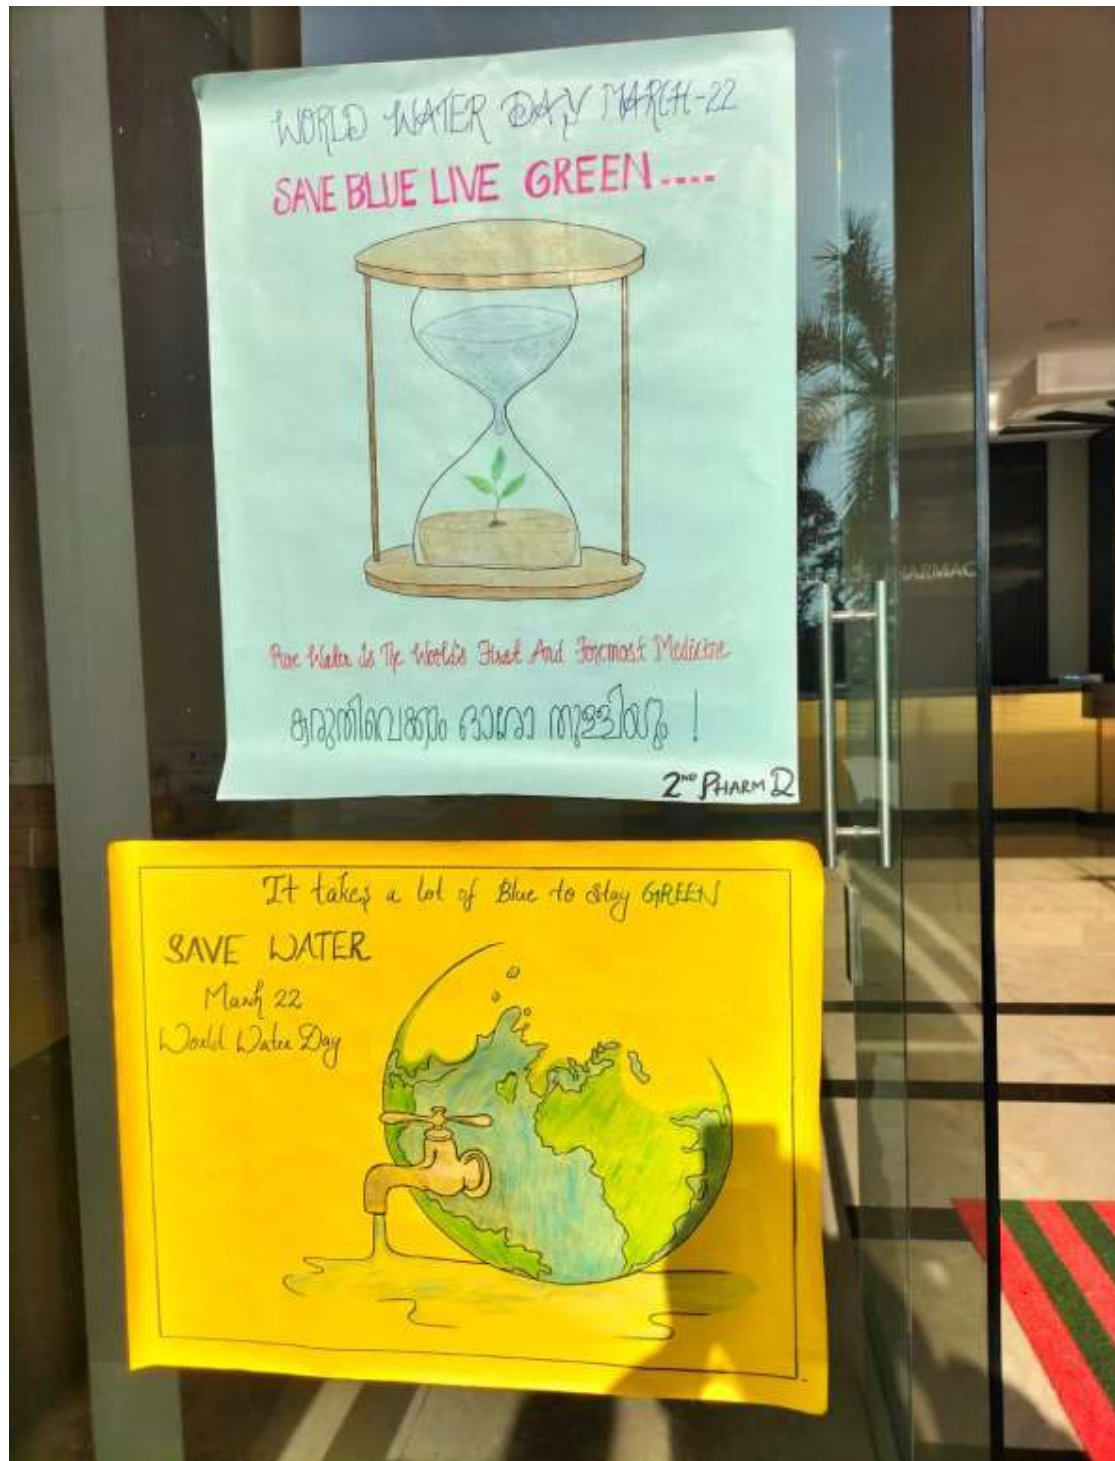 WORLD WATER DAY MARCH-22
SAVE BLUE LIVE GREEN....
Pure Water Is The World's First And Foremost Medicine
കരുതിവെക്കാം ഓരോ തുള്ളിയും !
2ND PHARM D
ARMAC
It takes a lot of Blue to stay GREEN
SAVE WATER
March 22
World Water Day